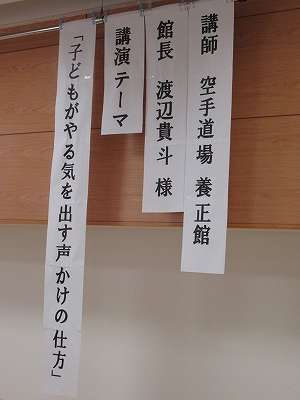 講師 空手道場 養正館
館長 渡辺貴斗 様
講演テーマ
「子どもがやる気を出す声かけの仕方」